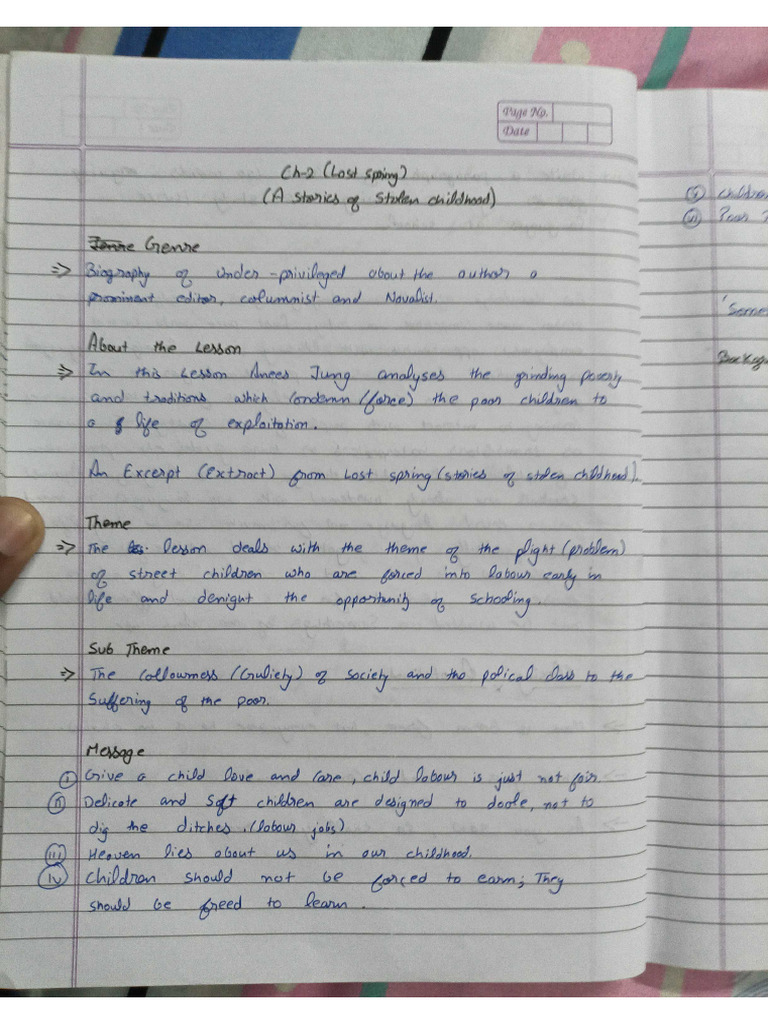 Page No.
Date
Ch-2 (Lost spring)
(A stories of stolen childhood)
Genre
⇒ Biography of under-privileged about the author a
prominent editor, columnist and Novalist.
About the Lesson
⇒ In this Lesson Anees Jung analyses the grinding poverty
and traditions which condemn (force) the poor children to
a life of exploitation.
An Excerpt (Extract) from Lost spring (stories of stolen childhood).
Theme
⇒ The lesson deals with the theme of the plight (problem)
of street children who are forced into labour early in
life and denight the opportunity of schooling.
Sub Theme
⇒ The Collowness (Guliety) of society and the polical class to the
Suffering of the poor.
Message
(i) Give a child love and care, child labour is just not fair.
(ii) Delicate and Soft children are designed to doole, not to
dig the ditches. (labour jobs)
(iii) Heaven lies about us in our childhood.
(iv) Children should not be forced to earn; They
should be freed to learn.
(i) Children
(ii) Poor
'Some
Backg